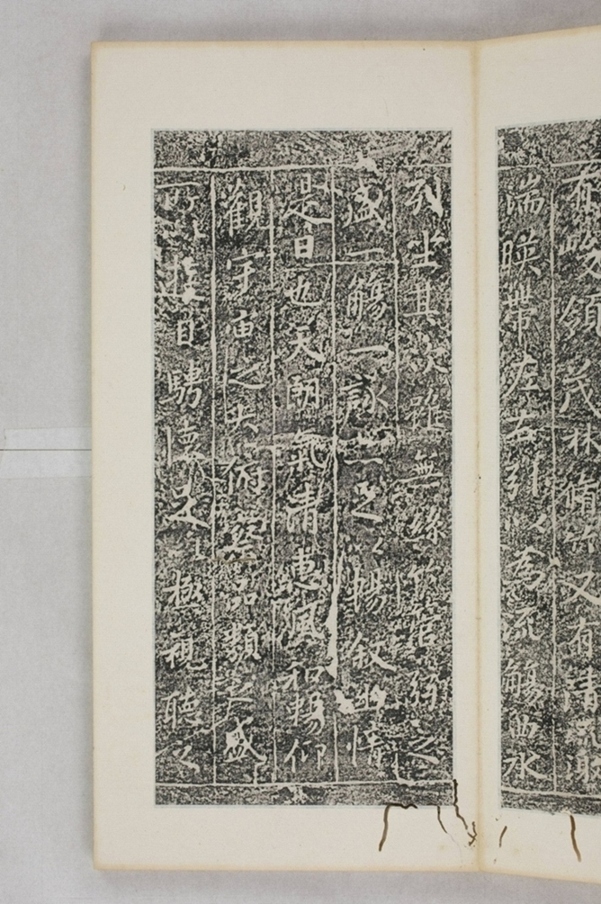 有峻領茂林脩竹又有清流激
湍暎帶左右引以為流觴曲水
列坐其次雖無絲竹管弦之
盛一觴一詠亦足以暢叙幽情
是日也天朗氣清惠風和暢仰
觀宇宙之大俯察品類之盛
所以遊目騁懷足以極視聽之